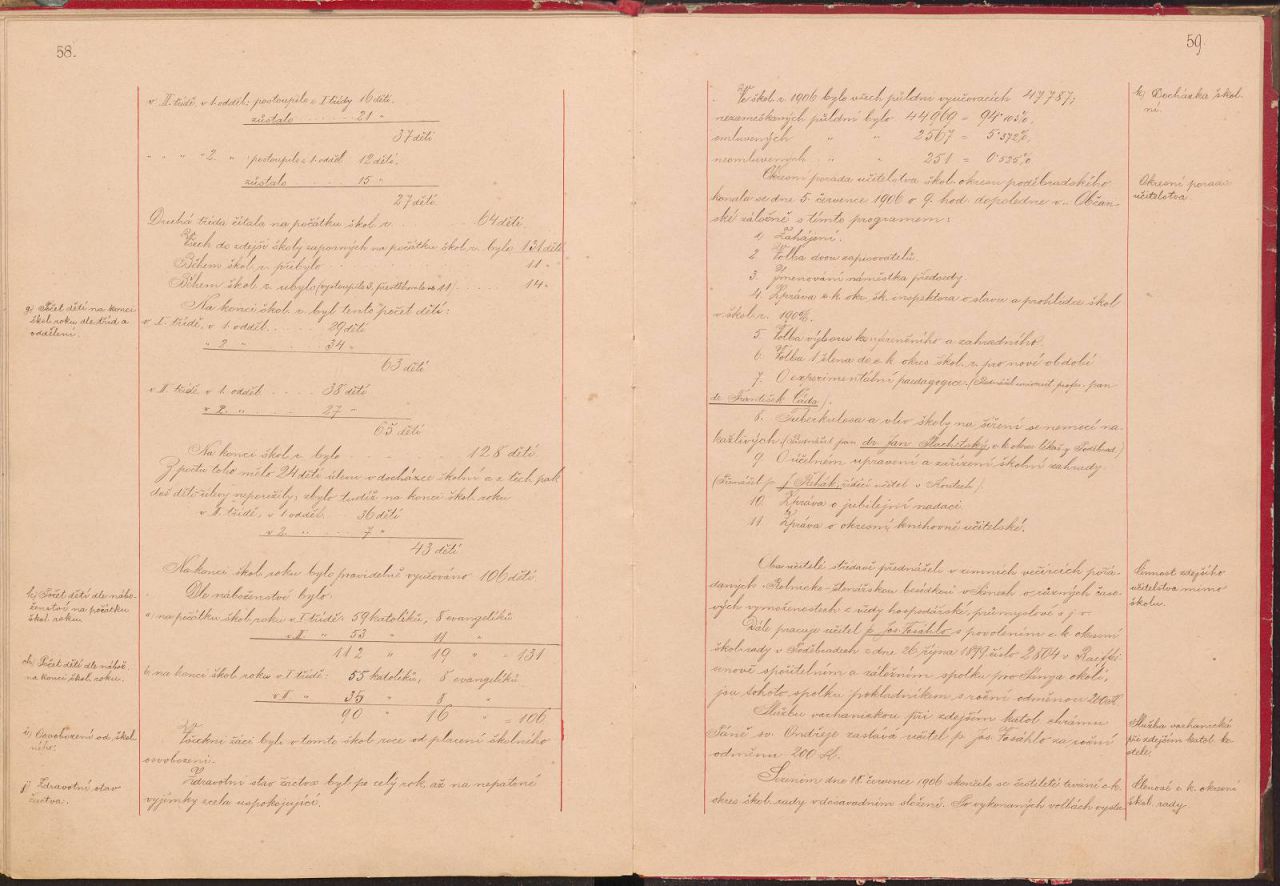 58.
v II. třídě, v 1. odděl.: postoupilo z I. třídy 16 dětí.
zůstalo . . . . . . . 21 "
37 dětí
" " " " 2. " postoupilo z 1. odděl. 12 dětí.
zůstalo . . . . . 15 "
27 dětí
Druhá třída čítala na počátku škol. r. . . . 64 dětí.
Všech do zdejší školy zapsaných na počátku škol. r. bylo 131 dětí
Během škol. r. přibylo . . . . . 11 "
Během škol. r. ubylo (vystoupilo 3, přestěhovalo se 11) . . . 14 "
g) Počet dětí na konci
škol. roku dle tříd a
oddělení.
Na konci škol. r. byl tento počet dětí:
v I. třídě, v 1. odděl. . . . . 29 dětí
" 2 " . . . . 34 "
63 dětí
v II. třídě, v 1. odděl. . . . . 38 dětí
v 2. " . . . . 27 "
65 dětí
Na konci škol. r. bylo 128 dětí.
Z počtu toho mělo 24 dětí úlevu v docházce školní a z těch pak
dětí úlevy nepoužily; zbylo tudíž na konci škol. roku
v II. třídě, v 1 odděl. . . . 36 dětí
v 2. " . . . 7 "
43 dětí
Na konci škol. roku bylo pravidelně vyučováno 106 dětí.
h) Počet dětí dle nábo-
ženství na počátku
škol. roku.
Dle náboženství bylo:
a) na počátku škol. roku v I třídě: 59 katolíků, 8 evangelíků
v II. " 53 " 11 "
112 " 19 " = 131
ch) Počet dětí dle nábož.
na konci škol. roku.
b) na konci škol. roku v I. třídě: 55 katolíků, 8 evangelíků
v II " 35 " 8 "
90 " 16 " = 106
i) Osvobození od škol-
ného.
Všickni žáci byli v tomto škol. roce od placení školného
osvobozeni.
j) Zdravotní stav
žactva.
Zdravotní stav žactva byl po celý rok až na nepatrné
vyjímky zcela uspokojující.
59.
k) Docházka škol-
ní.
Ve škol. r. 1906 bylo všech půldní vyučovacích 47787;
nezameškaných půldní bylo 44969 = 94.103%.
omluvených " " 2567 = 5.372%.
neomluvených " " 251 = 0.525%.
Okresní porada
učitelstva
Okresní porada učitelstva škol. okresu poděbradského
konala se dne 5. července 1906 o 9. hod. dopoledne v „Občan-
ské záložně s tímto programem:
1) Zahájení.
2 Volba dvou zapisovatelů.
3. Jmenování náměstka předsedy
4. Zpráva c. k. okr. šk. inspektora o stavu a prohlídce škol
v škol. r.
5. Volba výboru konferenčního a zahradního.
6. Volba 1 člena do c. k. okres. škol. r. pro nové období
7. O experimentální paedagogice. (Přednášel universit. profes. pan
dr. František Čáda).
8. Tuberkulosa a vliv školy na šíření se nemocí na-
kažlivých. (Přednášel pan dr. Jan c. k. okres. lékař z Poděbrad.)
9. O účelném upravení a zařízení školní zahrady
(Přednášel p. J. Řihák, řídící učitel v )
10. Zpráva o jubilejní nadaci.
11. Zpráva o okresní knihovně učitelské.
Činnost zdejšího
učitelstva mimo
školu.
Oba učitelé střídavě přednášeli v zimních večírcích pořá-
daných „Rolnicko-čtenářskou besídkou v o různých časo-
vých vymoženostech z vědy hospodářské, průmyslové a j. v.
Dále pracuje učitel p. Jos. Vosáhlo s povolením c. k. okresní
škol. rady v Poděbradech z dne 26. října 1899 číslo 2804 v Raiffei-
senově spořitelním a záložním spolku pro a okolí,
jsa tohoto spolku pokladníkem s roční odměnou 200 K.
Služba varhanická
při zdejším katol. ko-
stele.
Službu varhanickou při zdejším katol. chrámu
Páně sv. Ondřeje zastává učitel p. Jos. Vosáhlo za roční
odměnu 200 K.
Členové c. k. okresní
škol. rady
dne 18. července 1906 skončilo se šestileté trvání c. k.
okres. škol. rady v dosavadním složení. Po vykonaných volbách